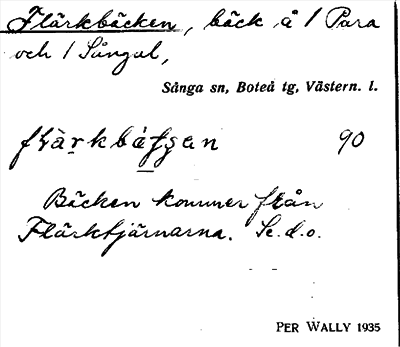 Flärkbäcken, bäck å 1 Para
och 1 Sångal,
Sånga sn, Boteå tg, Västern. l.
90
Bäcken kommer från
Flärktjärnarna. Se.d.o.
PER WALLY 1935